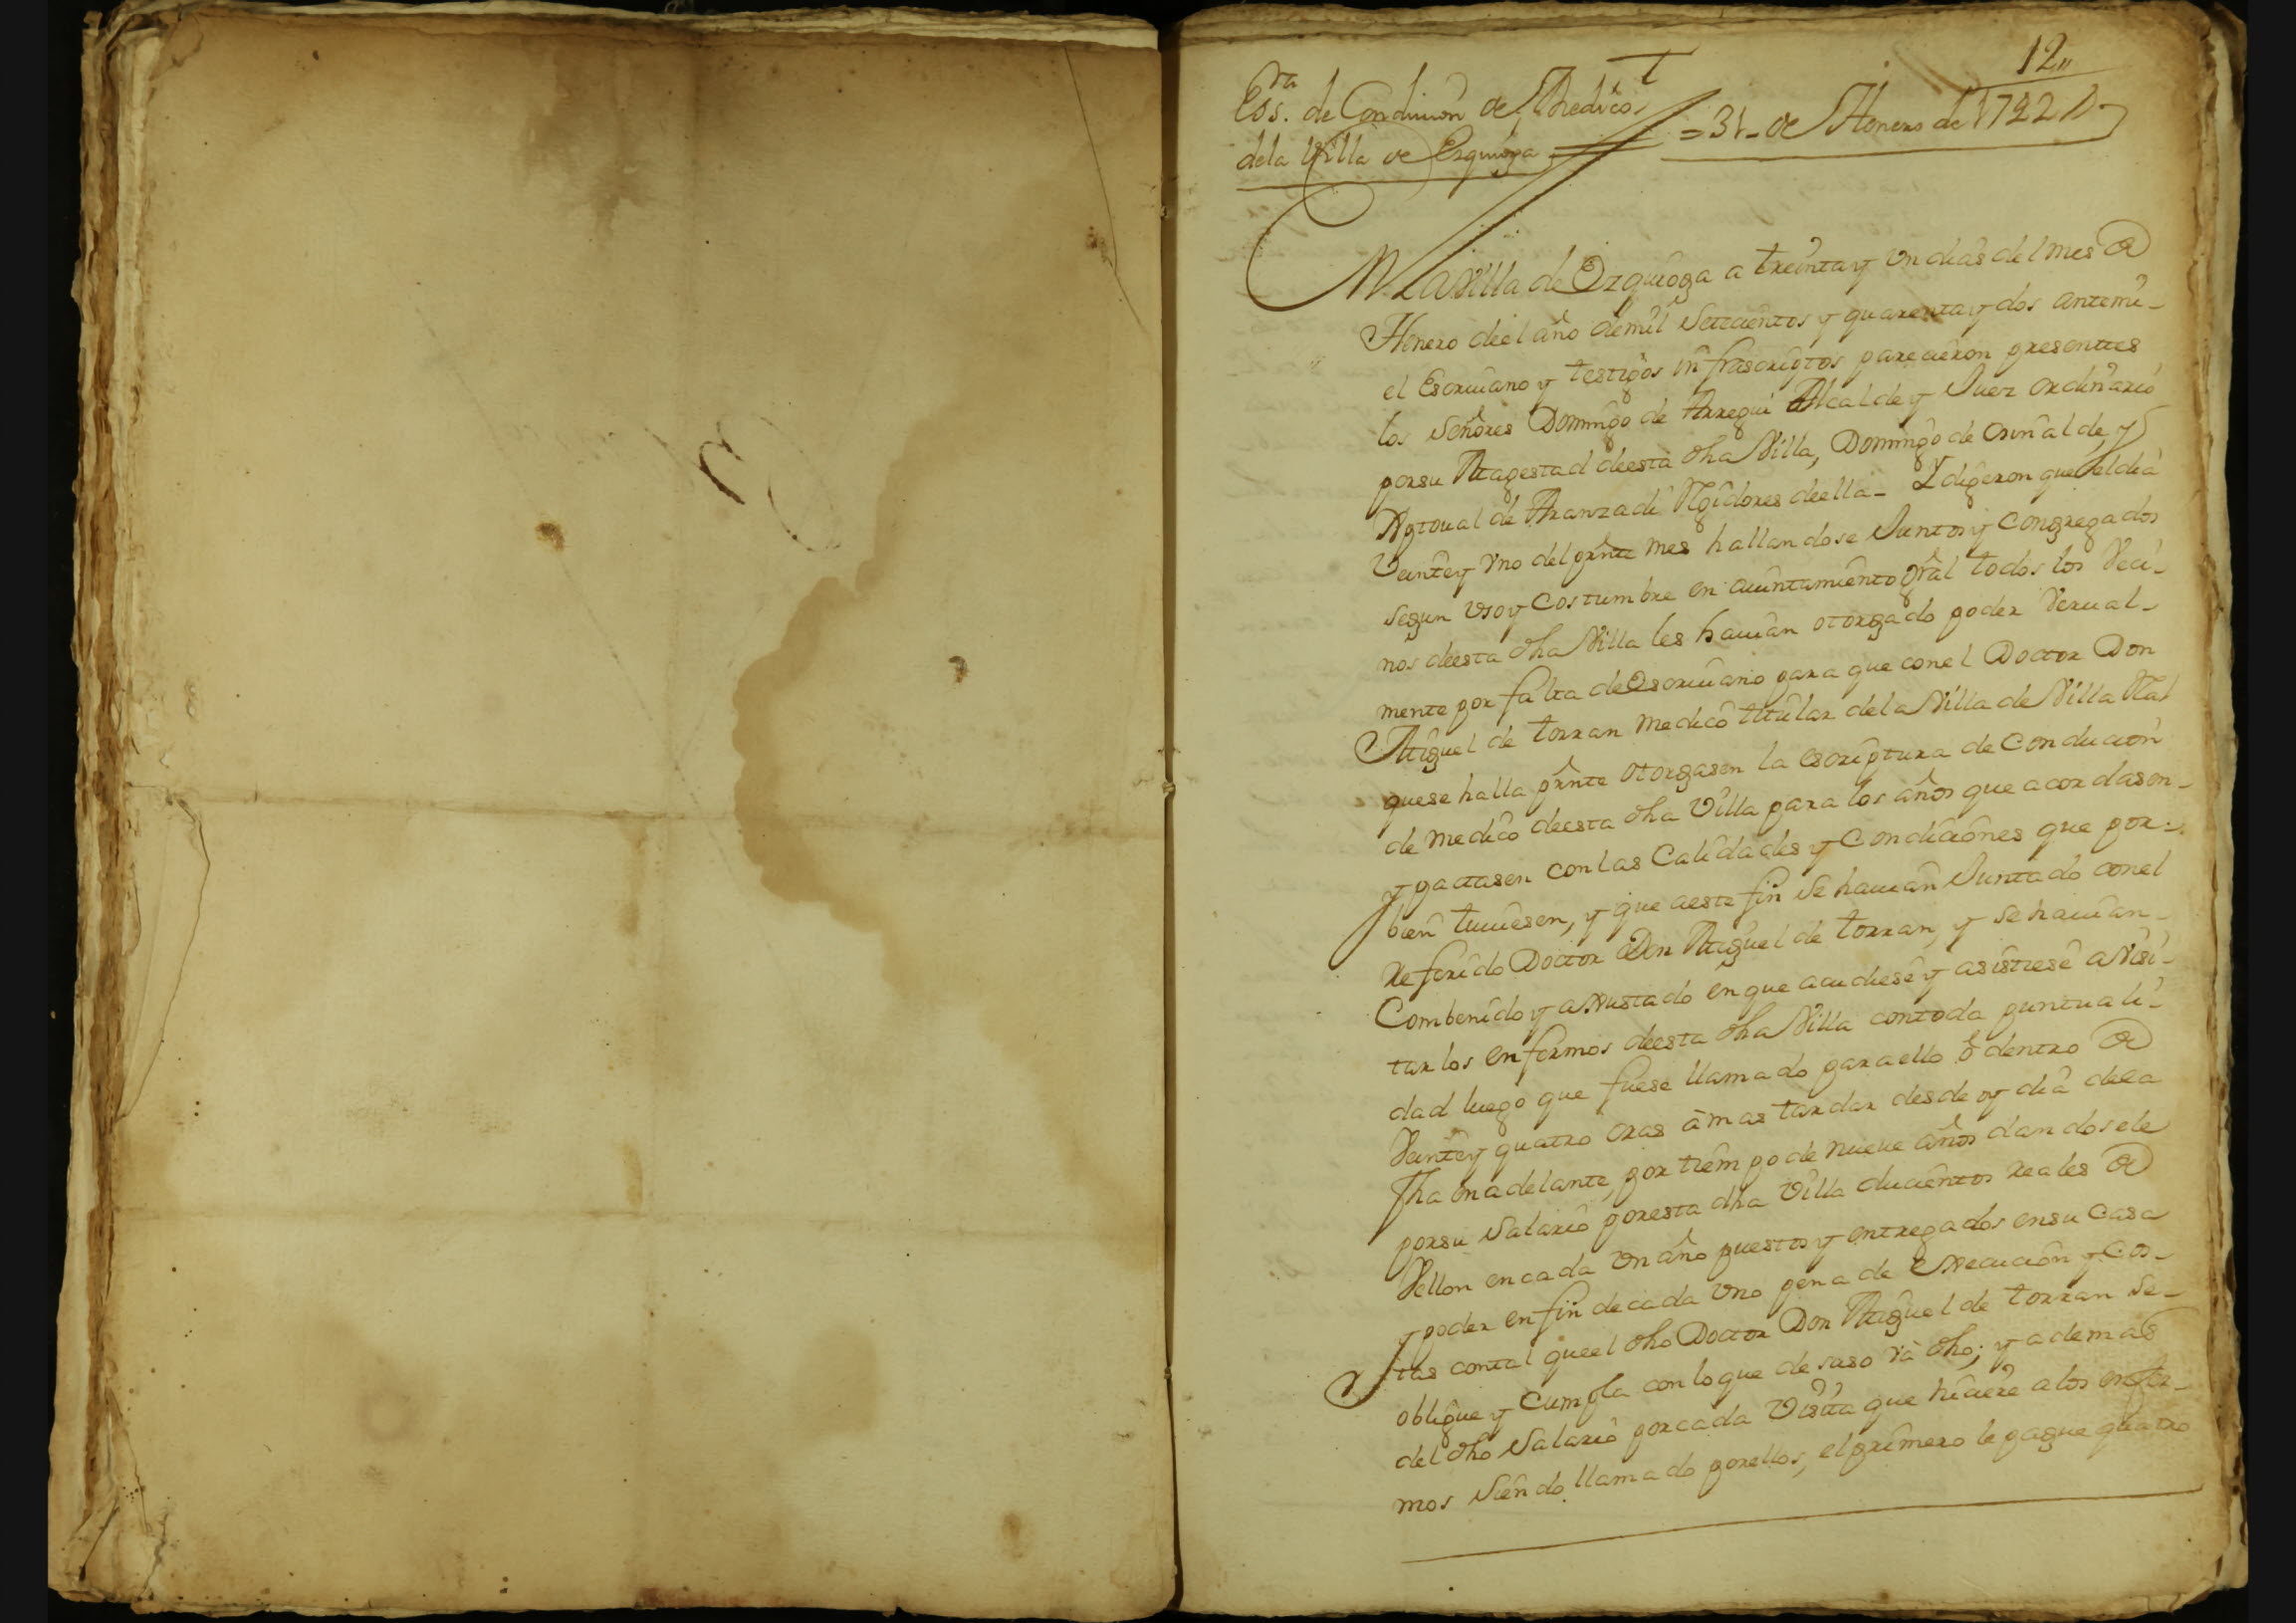 12,,
Es.ra de Conducion de Medico
dela Villa de Ezquioga
= 31 - de Henero de 1742 //
En la Villa de Ezquioga a treinta y un dias del mes de
Henero deel año demil Setecientos y quarenta y dos antemi-
el Escriuano y testigos infrascriptos parecieron presentes
los Señores Domingo de Arregui Alcalde y Juez ordinario
porsu Magestad deesta dha Villa, Domingo de , y
de Aranzadi Rexidores deella - Y digeron queel dia
Veintey Vno del prnte mes hallandose Juntos y Congregados
segun Vso y Costumbre en aiuntamiento Grâl todos los Veci-
nos deesta dha Villa les hauian otorgado poder Verual-
mente por falta deEscriuano para que conel Doctor Don
Miguel de torran medico titular dela Villa de Villa Real
quese halla prnte otorgasen la escriptura de Conducion
de medico deesta dha Villa para los años que acordasen-
y pactasen conlas Calidades y Condiciones que por-
bien tuuiesen, y que aeste fin se hauian Juntado conel
referido Doctor Don Miguel de torran, y se hauian-
Combenido y aJustado enque acudiese y asistiese aVisi-
tar los enfermos deesta dha Villa contoda puntuali-
dad luego que fuese llamado paraello ò dentro de
Veintey quatro oras âmas tardar desde oy dia dela
fha enadelante, por tiempo de nueue años dandosele
porsu Salario poresta dha Villa ducientos reales de
Vellon encada Vn año puestos y entregados ensu Casa
y poder enfin decada Vno pena de execucion y Cos-
tas contal queel dho Doctor Don Miguel de torran se-
obligue y Cumpla conloque desuso và dho; y ademas
del dho Salario porcada Visita que hiciere alos enfer-
mos siendo llamado porellos, elprimero le pague quatro